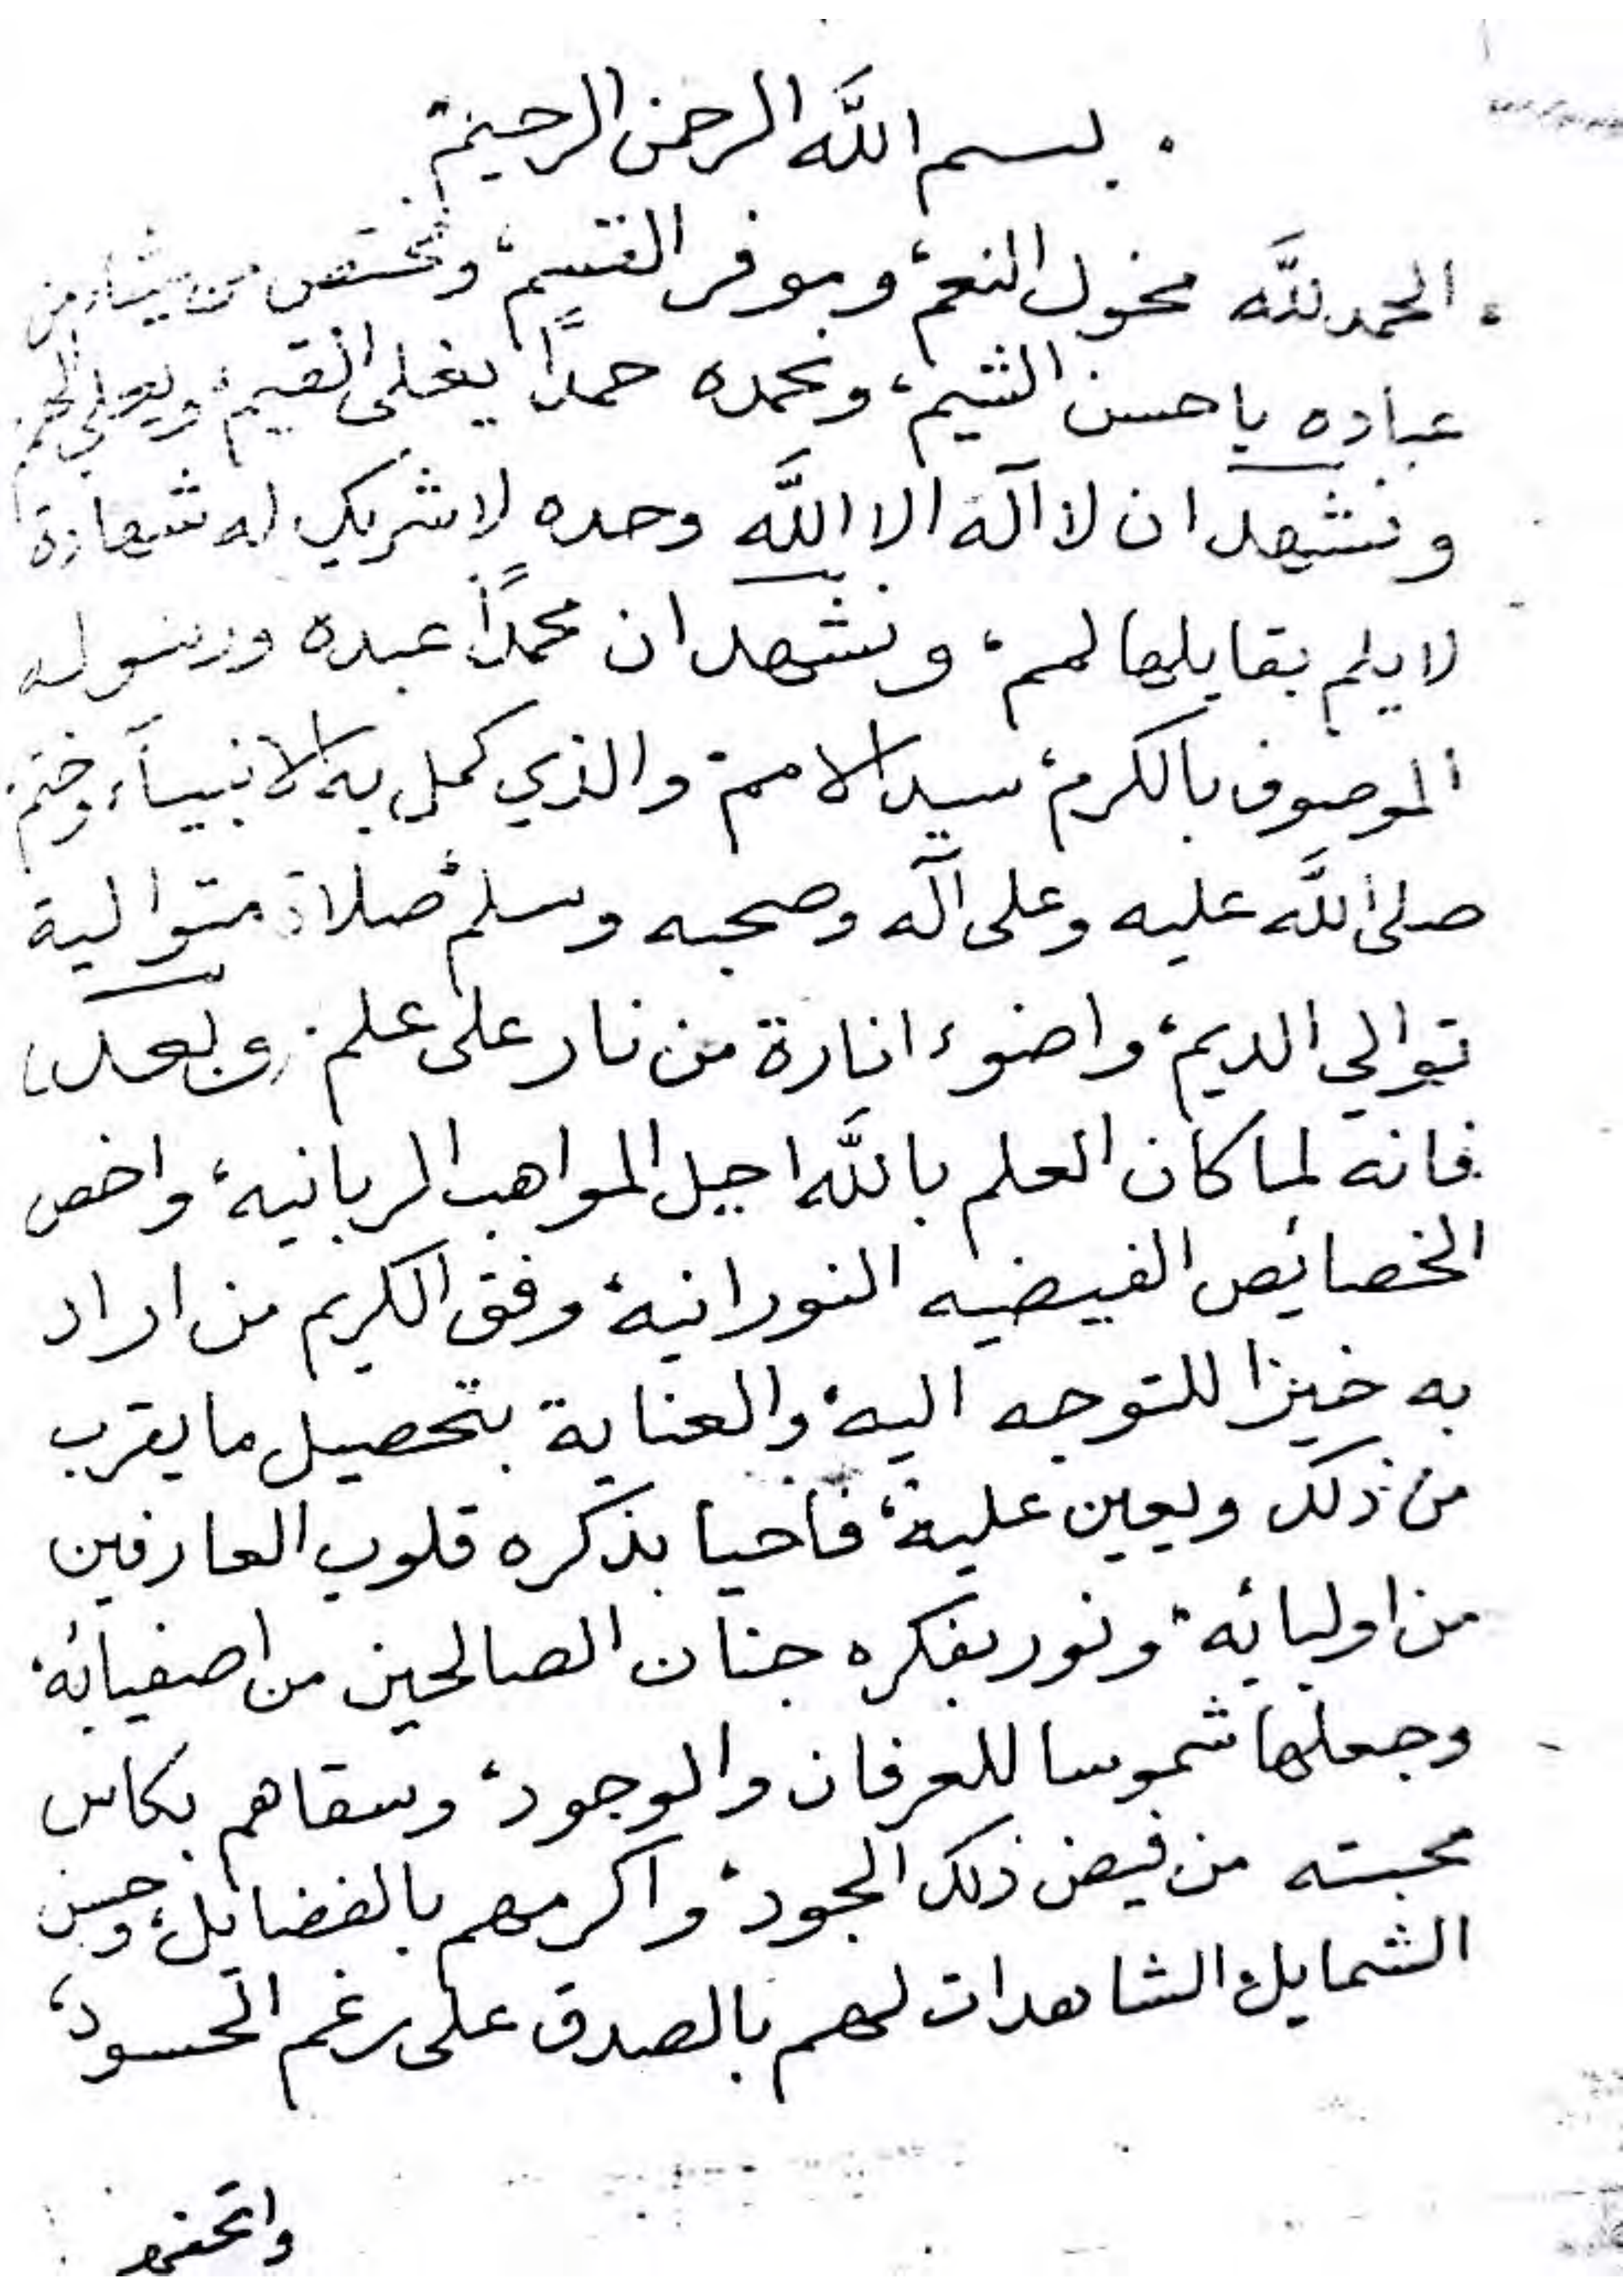 بسم الله الرحمن الرحيم
الحمد لله مخول النعم، وموفر القسم، ومختص من يشاء من
عباده باحسن الشيم، ونحمده حمدًا يغلى القيم، ويعلي
ونشهد ان لا آله الا الله وحده لا شريك له شهادة
لا يلم بقايلها لمم، ونشهد ان محمدًا عبده ورسوله
الموصوف بالكرم، سيد الامم، والذي كمل به الانبيآء وختم
صلى الله عليه وعلى آله وصحبه وسلم، صلاة متوالية
توالي الديم، واضوء انارة من نار على علم. (وبعد)
فانه لما كان العلم بالله اجل المواهب الربانيه، واخص
الخصائص الفيضيه النورانيه، وفق الكريم من اراد
به خيرا للتوجه اليه، والعناية بتحصيل ما يقرب
من ذلك ويعين عليه، فاحيا بذكره قلوب العارفين
من اوليائه، ونور بفكره جنان الصالحين من اصفيائه،
وجعلها شموسا للعرفان والوجود، وسقاهم بكاس
محبته من فيض ذلك الجود، واكرمهم بالفضايل، وحسن
الشمايل، الشاهدات لهم بالصدق على رغم الحسود،
واتحفهم